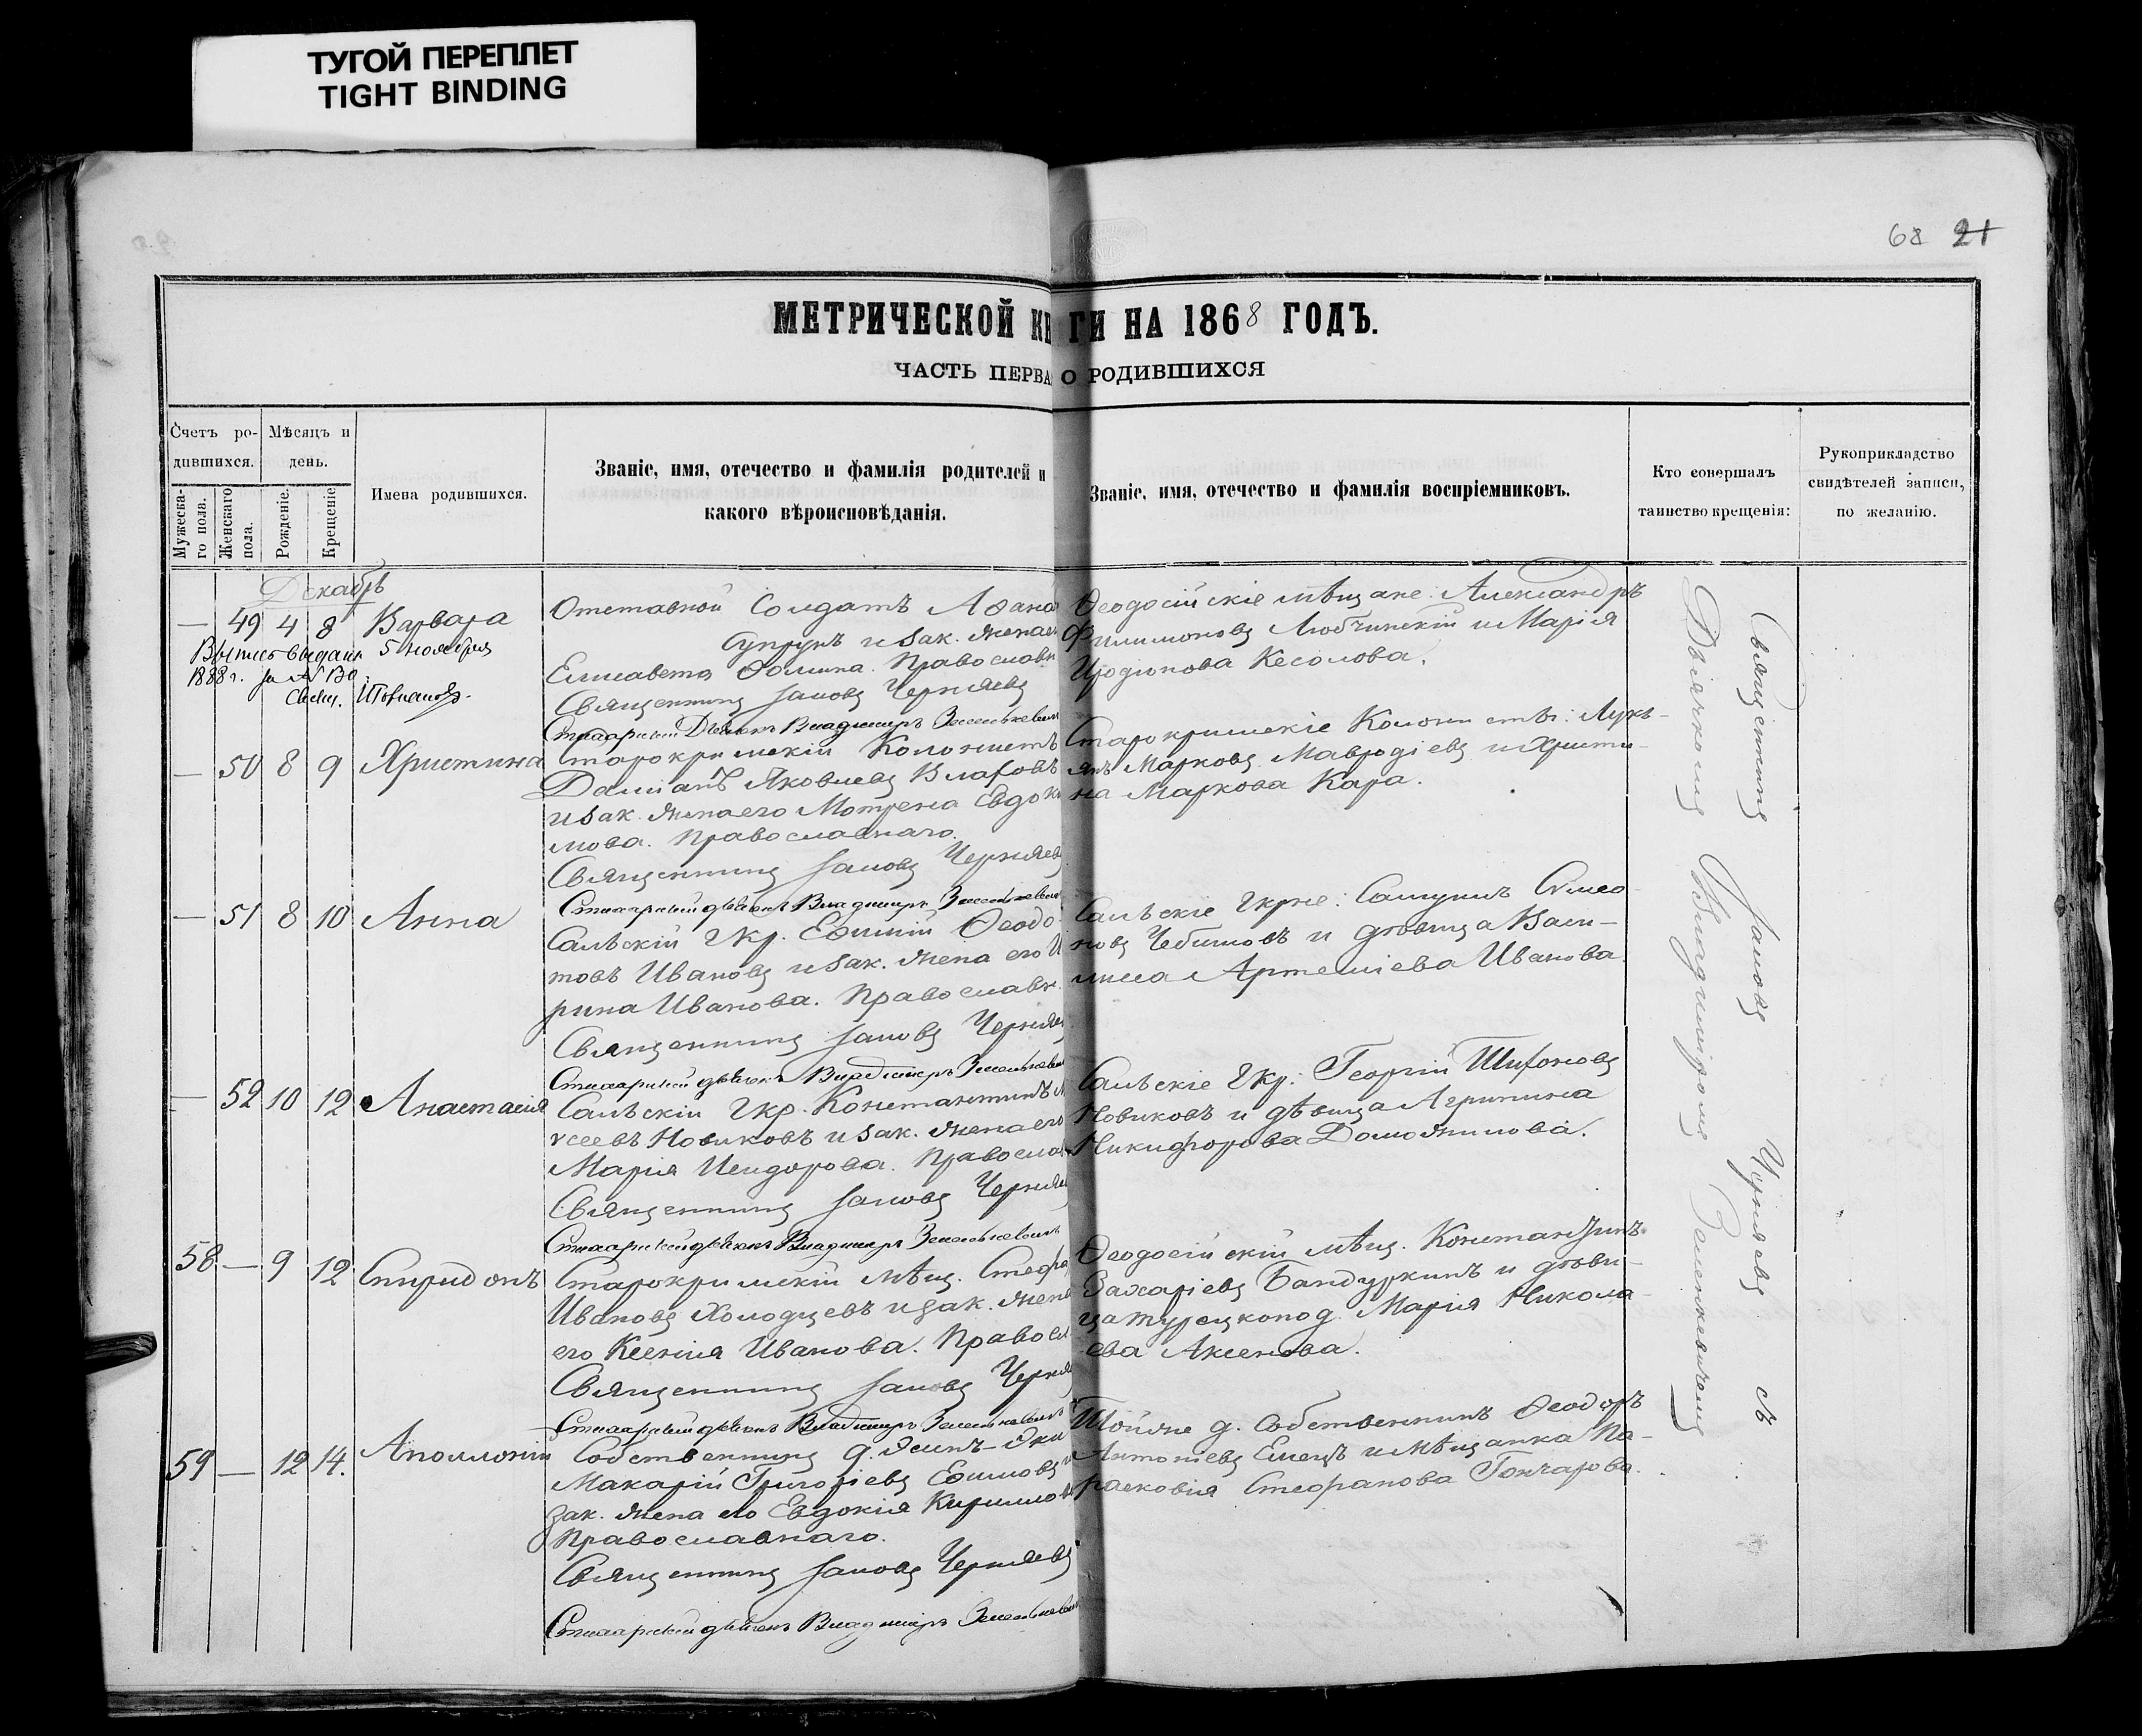 ТУГОЙ ПЕРЕПЛЕТ
TIGHT BINDING
68 21
МЕТРИЧЕСКОЙ КН ГИ НА 1868 ГОДЪ.
ЧАСТЬ ПЕРВА О РОДИВШИХСЯ
Счетъ ро-
дившихся.
Мужеска-
го пола.
Женскаго
пола.
Мѣсяцъ и
день.
Рожденіе.
Крещеніе
Имена родившихся.
Званіе, имя, отечество и фамилія родителей и
какого вѣроисповѣданія.
Званіе, имя, отечество и фамилія воспріемниковъ.
Кто совершалъ
таинство крещенія:
Рукоприкладство
свидѣтелей записи,
по желанію.
Декабрь
— 49 4 8 Варвара
Выпись выдана 5 ноября
1888 г. за №
Свящ.
Отставной Солдатъ Аѳана
Супрунъ и зак. жена
Елисавета Ѳомина. Православн
Священникъ Іаковъ Черняевъ
Стихарный Дьячекъ Владиміръ Зеленкевичъ
Ѳеодосійскіе мѣщане: Александръ
Филимоновъ Любчинскій и Марія
Иродіонова Кесолова.
— 50 8 9 Христина
Старокримскій Колонистъ
Даміанъ Яковлевъ Влаховъ
и зак. жена его Мотрена Евдоки
мова. Православнаго.
Священникъ Іаковъ Черняевъ
Стихарный дьячекъ Владиміръ Зеленкевичъ
Старокримскіе Колонисты: Лукь-
янъ Марковъ Мавродіевъ и Христи-
на Маркова Кара.
— 51 8 10 Анна
Сальскій Гкр. Еѳимій Ѳеодо-
товъ Ивановъ и зак. жена его И
рина Иванова. Православн.
Священникъ Іаковъ Черняев
Стихарный дьячекъ Владиміръ Зеленкевич
Сальскіе Гкрне: Самуилъ Симео-
новъ Чебишовъ и дѣвица Васи-
лиса Артеміева Иванова.
— 52 10 12 Анастасія
Сальскій Гкр. Константинъ
сеевъ Новиковъ и зак. жена его
Марія Исидорова. Правосла
Священникъ Іаковъ Черняе
Стихарный дьячекъ Владиміръ Зеленкевичъ
Сальскіе Гкр: Георгій Тихоновъ
Новиковъ и дѣвица Агрипина
Никифорова Доможилова.
58 — 9 12 Спиридонъ
Старокримскій мѣщ. Стефа
Ивановъ Холодцевъ и зак. жена
его Ксенія Иванова. Правосл
Священникъ Іаковъ Черня
Стихарный дьячекъ Владиміръ Зеленкевичъ
Ѳеодосійскій мѣщ. Константинъ
Захаріевъ Бандуркинъ и дѣви-
ца турецкопод. Марія Никола-
ева Аксенова.
59 — 12 14. Аполлоній
Собственникъ д.
Макарій Григоріевъ Еѳимовъ и
зак. жена его Евдокія Кириллов
Православнаго.
Священникъ Іаковъ Черняевъ
Стихарный дьячекъ Владиміръ Зеленкевич
д. Собственникъ Ѳеодоръ
Антоніевъ Емецъ и мѣщанка Па-
расковія Стефанова Гончарова.
Священникъ Іаковъ Черняевъ съ
Дьячкомъ Владиміромъ Зеленкевичемъ